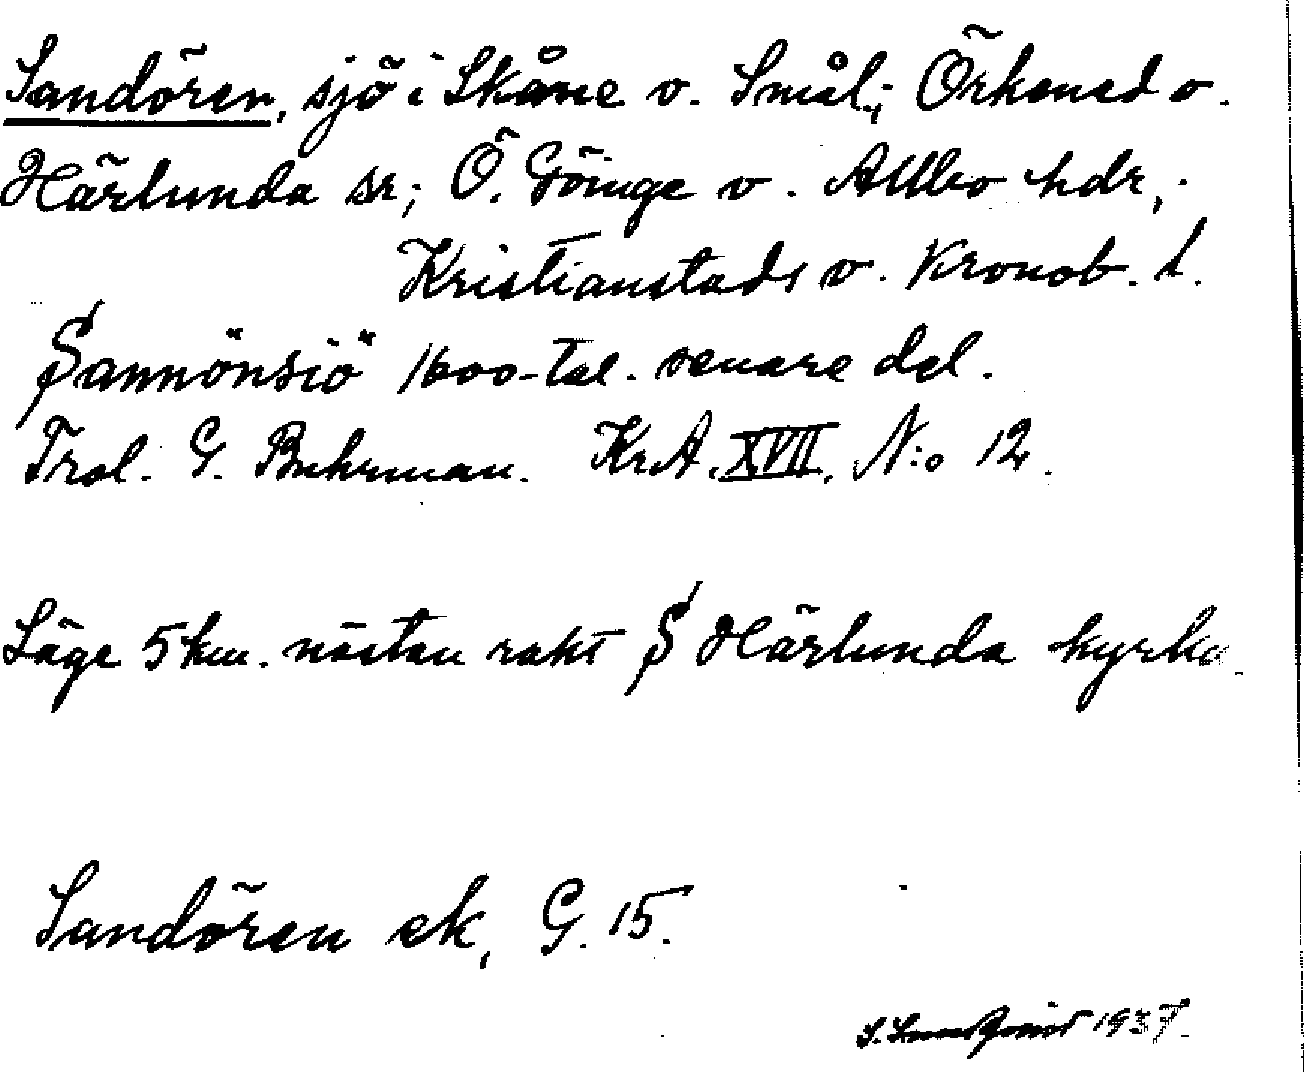 Sandören, sjö i Skåne o. Smål; Örkened o.
Härlunda sr; Ö. Göinge o. Allbo hdr,
Kristianstads o. Kronob. l.
Sannönsiö 1600-tal. senare del.
Trol. G. Buhrman. KrA. XVII, N:o 12.
Läge 5 km. nästan rakt S Härlunda kyrka
Sandören ek, G. 15.
1937.